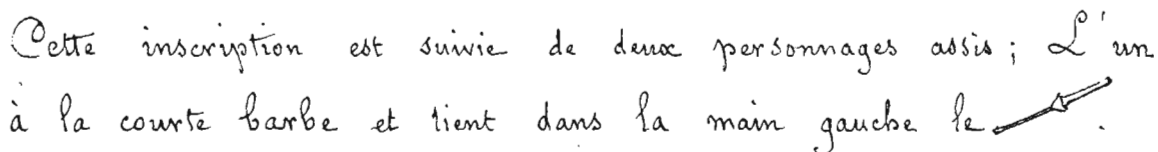 Cette inscription est suivie de deux personnages assis ; L'un
à la courte barbe et tient dans la main gauche le .